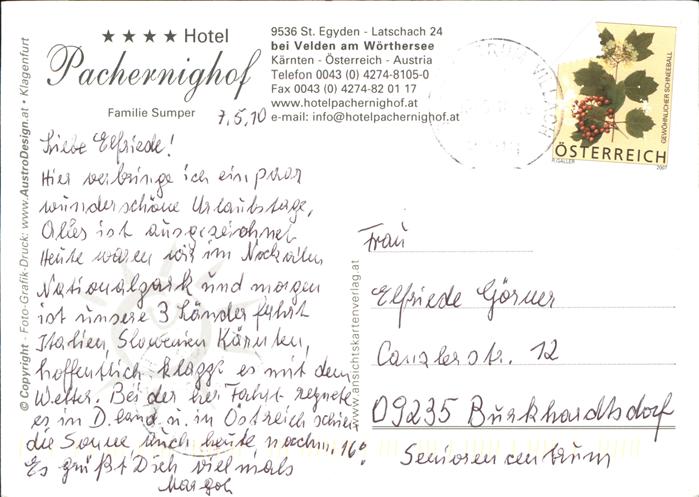 ★★★★ Hotel
Pachernighof
Familie Sumper
9536 St. Egyden - Latschach 24
bei Velden am Wörthersee
Kärnten - Österreich - Austria
Telefon 0043 (0) 4274-8105-0
Fax 0043 (0) 4274-82 01 17
www.hotelpachernighof.at
e-mail: info@hotelpachernighof.at
7.5.10
Liebe Elfriede!
Hier verbringe ich ein paar
wunderschöne Urlaubstage,
Alles ist ausgezeichnet
Heute waren wir im Nockalm
Nationalpark und morgen
ist unsere 3 Länderfahrt
Italien, Slowenien Kärnten,
hoffentlich klappt es mit dem
Wetter. Bei der her Fahrt regnete
es in D.land u. in Östreich schien
die Sonne, auch heute nachm. 16°
Es grüßt Dich vielmals
Margot
© Copyright · Foto-Grafik-Druck: www.AustroDesign.at · Klagenfurt
www.ansichtskartenverlag.at
GEWÖHNLICHER SCHNEEBALL
ÖSTERREICH
2007
Frau
Elfriede Görner
Canzlerstr. 12
09235 Burkhardtsdorf
Seniorencentrum